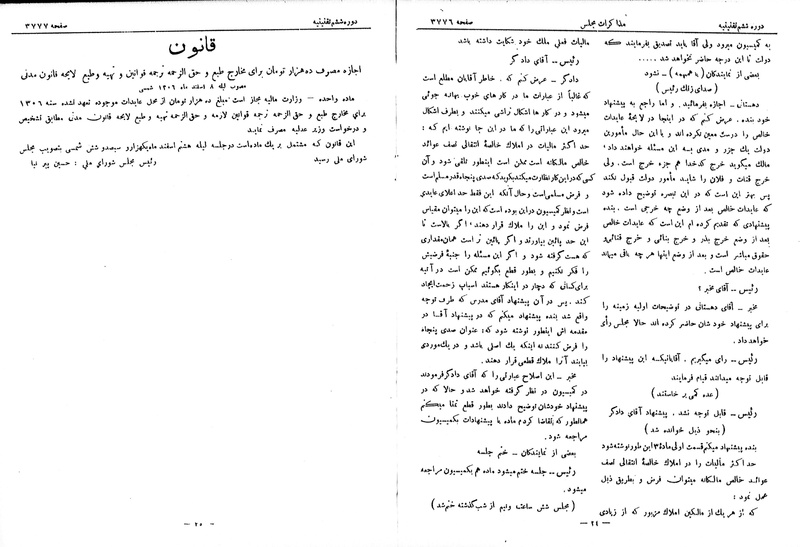 دوره ششم تقنینیه
مذاکرات مجلس
صفحه ۳۷۷۶
به کمیسیون میرود ولی آقا باید تصدیق بفرمایند که
دولت تا این درجه حاضر نخواهد شد .....
بعضی از نمایندگان (با همهمه) – نشود
(صدای زنگ رئیس)
دهستانی – اجازه بفرمائید . و اما راجع به پیشنهاد
خود بنده . عرض کنم که در اینجا در لایحه عایدات
خالص را درست معین نکرده اند و با این حال مأمورین
دولت یک جزر و مدی بسه این مسئله خواهند داد
مالک میگوید خرج کدخدا هم جزء خرج است . ولی
خرج قنات و فلان را شاید مأمور دولت قبول نکند
پس بهتر این است که در این تبصره توضیح داده شود
که عایدات خالص بعد از وضع چه خرجی است . بنده
پیشنهادی که تقدیم کرده ام این است که عایدات خالص
بعد از وضع خرج بذر و خرج بنائی و خرج قناتی و
حقوق مباشر است و بعد از وضع اینها هر چه باقی میماند
عایدات خالص است .
رئیس – آقای مخبر ؟
مخبر – آقای دهستانی در توضیحات اولیه زمینه را
برای پیشنهاد خود شان حاضر کرده اند حالا مجلس رأی
خواهد داد .
رئیس – رأی میگیریم . آقایانیکه این پیشنهاد را
قابل توجه میدانند قیام فرمایند
(عده کمی بر خاستند)
رئیس – قابل توجه نشد . پیشنهاد آقای دادگر
(بنحو ذیل خوانده شد)
بنده پیشنهاد میکنم قسمت اولی ماده ۳ این طور نوشته شود
حد اکثر مالیات را در املاک خالصه انتقالی نصف
عوائد خالص مالکانه میتوان فرض و بطریق ذیل
عمل نمود :
که از هر یک از مالکین املاک مزبور که از زیادی
مالیات فعلی ملک خود شکایت داشته باشد
رئیس – آقای دادگر
دادگر – عرض کنم که . خاطر آقایان مطلع است
که غالباً از عبارات ما در کار های خوب بهانه جوئی
میشود و در کارها اشکال تراشی میکنند و بطرف اشکال
میرود این عباراتی را که ما در این جا نوشته ایم که :
حد اکثر مالیات در املاک خالصه انتقالی نصف عوائد
خالص مالکانه است ممکن است اینطور تلقی شود و آن
کسی که در این کار نظارت میکند بگوید که صدی پنجاه قدر مسلم است
و فرض مسلمی است و حال آنکه این فقط حد اعلای عایدی
است و نظر کمیسیون در این بوده است که این را میتوان مقیاس
فرض نمود و این را ملاک قرار دهند؛ اگر بالاست تا
این حد پائین بیاورند و اگر پائین تر است همان مقداری
که هست گرفته شود و اگر این مسئله را جنبه فرضیش
را فکر نکنیم و بطور قطع بگوئیم ممکن است در آتیه
برای کسانی که دچار در اینکار هستند اسباب زحمت ایجاد
کند . پس در آن پیشنهاد آقای مدرس که طرف توجه
واقع شد بنده پیشنهاد میکنم که در پیشنهاد آقا در
مقدمه اش اینطور نوشته شود که : عنوان صدی پنجاه
را فرض کنند نه اینکه یک اصلی باشد و در یک موردی
بیایند آنرا ملاک قطعی قرار دهند .
مخبر – این اصلاح عبارتی را که آقای دادگر فرمودند
در کمیسیون در نظر گرفته خواهد شد و حالا که در
پیشنهاد خودشان توضیح دادند بطور قطع تمنا میکنم
همانطور که تقاضا کردم ماده با پیشنهادات بکمیسیون
مراجعه شود .
بعضی از نمایندگان – ختم جلسه
رئیس – جلسه ختم میشود ماده هم بکمیسیون مراجعه
میشود .
(مجلس شش ساعت ونیم از شب گذشته ختم شد)
– ۲۴ –
دوره ششم تقنینیه
صفحه ۳۷۷۷
قانون
اجازه مصرف ده هزار تومان برای مخارج طبع و حق الزحمه ترجمه قوانین و تهیه و طبع لایحه قانون مدنی
مصوب لیله ۸ اسفند ماه ۱۳۰۶ شمسی
ماده واحده – وزارت مالیه مجاز است مبلغ ده هزار تومان از محل عایدات موجوده تعهد نشده سنه ۱۳۰۶
برای مخارج طبع و حق الزحمه ترجمه قوانین لازمه و حق الزحمه تهیه و طبع لایحه قانون مدنی مطابق تشخیص
و درخواست وزیر عدلیه مصرف نماید
این قانون که مشتمل بر یک ماده است در جلسه لیله هشتم اسفند ماه یکهزار و سیصد و شش شمسی بتصویب مجلس
شورای ملی رسید
رئیس مجلس شورای ملی : حسین پیر نیا
– ۲۵ –